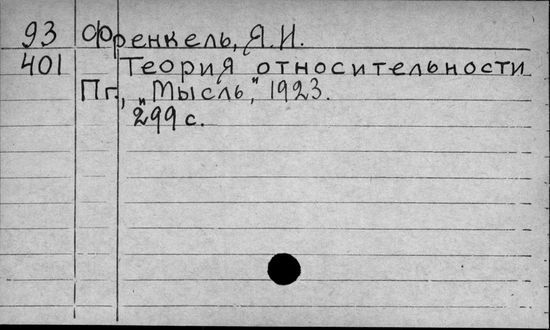 93 Френкель, Я.И.
401 Теория относительности
Пг., "Мысль", 1923.
299 с.